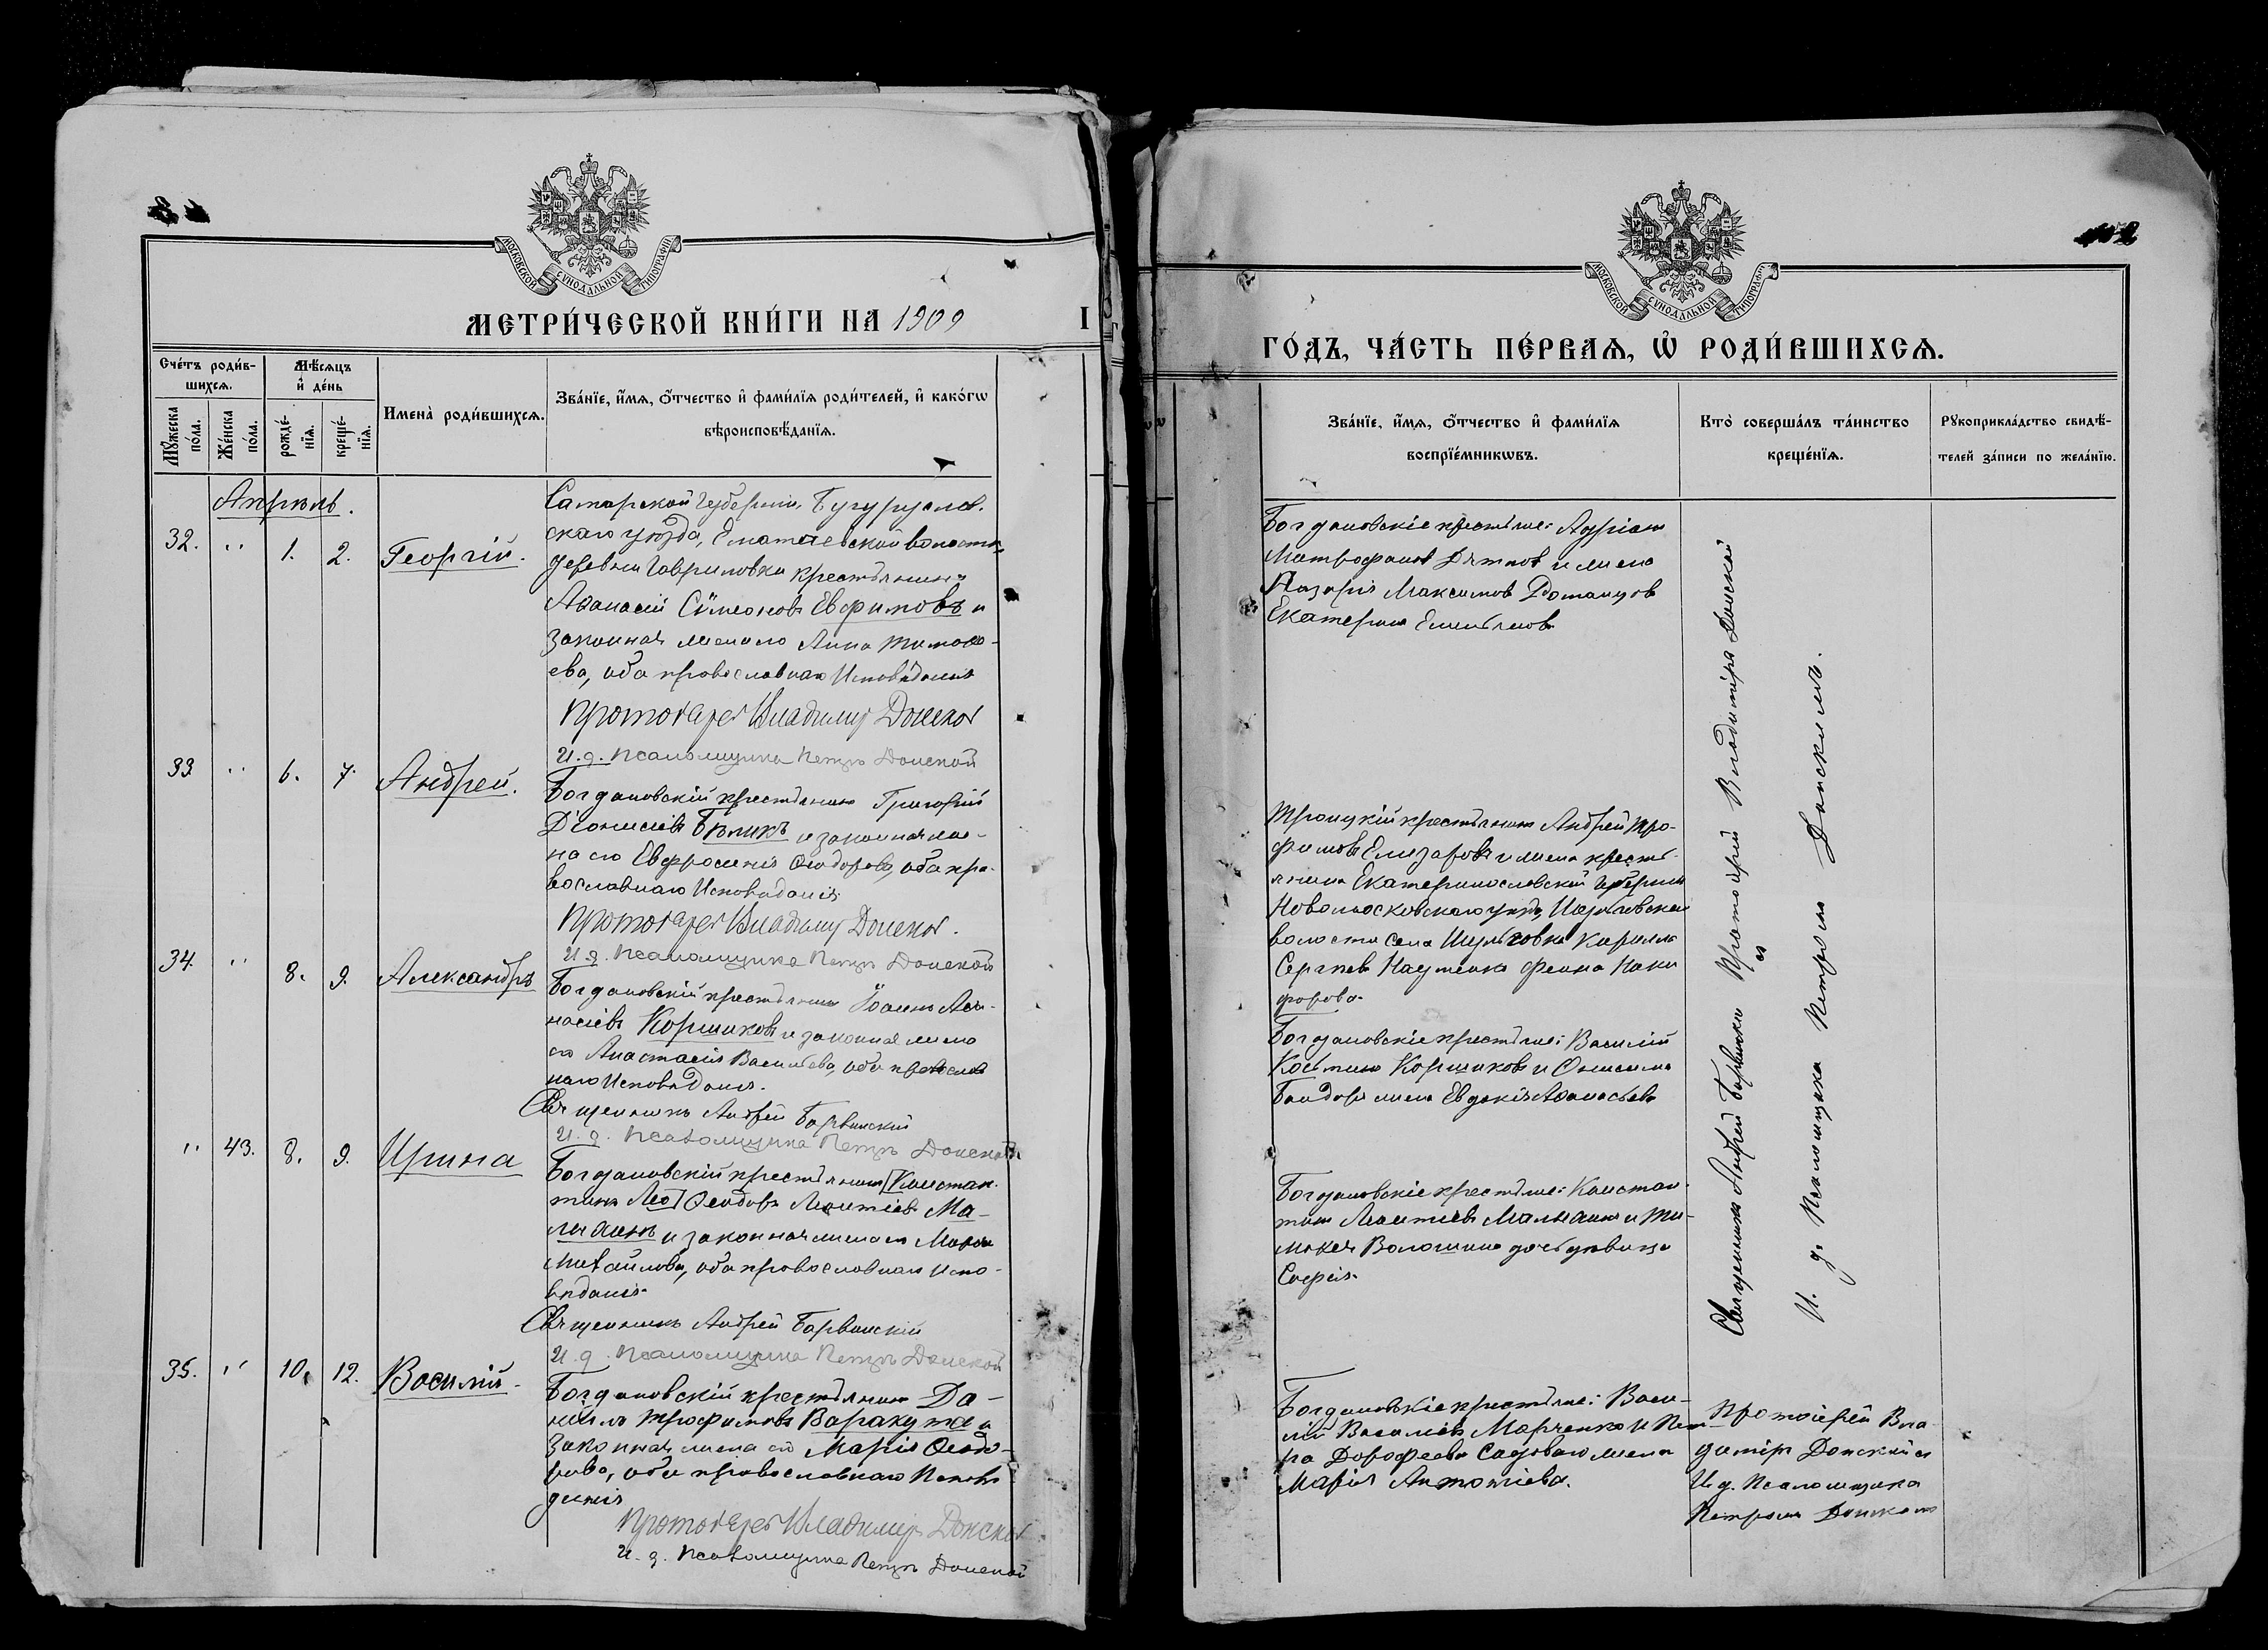 МОСКОВСКОЙ СѴНОДАЛЬНОЙ ТИПОГРАФІИ
МЕТРИ́ЧЕСКОЙ КНИ́ГИ НА 1909
Сче́тъ роди́в-
шихсѧ.
Мꙋ́жеска по́ла.
Же́нска по́ла.
Мѣ́сѧцъ и҆ де́нь
рожде́-
нїѧ.
креще́-
нїѧ.
Имена̀ роди́вшихсѧ.
Зва́нїе, и҆́мѧ, ѻ҆́тчество и҆ фами́лїѧ роди́телей, и҆ како́гѡ
вѣроисповѣ́данїѧ.
Апрѣль.
32. " 1. 2. Георгій.
Самарской Губерніи, Бугуруслан-
скаго уѣзда, волости,
деревни Гавриловки крестьянинъ
Аѳанасій Сѵмеоновъ Евфимовъ и
законная жена его Анна Тимоѳе-
ева, оба православнаго Исповѣданія
Протоіерей Владимір Донской
И. д. Псаломщика Петръ Донской
33 " 6. 7. Андрей.
Богдановскій крестьянинъ Григорій
Діонисіевъ Бѣликъ и законная же-
на его Евфросинія Ѳеодорова, оба пра-
вославнаго Исповѣданія
Протоіерей Владимір Донской.
И. д. Псаломщика Петръ Донской
34. " 8. 9. Александръ
Богдановскій крестьянинъ Іоаннъ Аѳа-
насіевъ Коршиковъ и законная жена
его Анастасія Васильева, оба православ
наго Исповѣданія.
Священникъ Андрей Барвинскій
И. д. Псаломщика Петръ Донской.
" 43. 8. 9. Ирина
Богдановскій крестьянинъ [Констан-
тинъ Лео] Ѳеодоръ Леонтіевъ Ма-
и законная жена его Марія
Михайлова, оба православнаго Испо-
вѣданія.
Священникъ Андрей Барвинскій
И. д. Псаломщика Петръ Донской
35. " 10. 12. Василій.
Богдановскій крестьянинъ Да-
ніилъ Трофимовъ Варакута и
законная жена его Марія Ѳеодо-
рова, оба православнаго Исповѣ
данія
Протоіерей Владимір Донской
И. д. Псаломщика Петръ Донской
МОСКОВСКОЙ СѴНОДАЛЬНОЙ ТИПОГРАФІИ
ГО́ДЪ, ЧА́СТЬ ПЕ́РВАѦ, Ѡ҆ РОДИ́ВШИХСѦ.
Зва́нїе, и҆́мѧ, ѻ҆́тчество и҆ фами́лїѧ
воспрїе́мникѡвъ.
Кто̀ соверша́лъ та́инство
креще́нїѧ.
Рꙋкоприкла́дство свидѣ́-
телей за́писи по жела́нїю.
Богдановскіе крестьяне: Адріан
Митрофанов Дятлов и жена
Лазаря Максимов
Екатерина Емельянов
Троицкій крестьянинъ Андрей Тро-
фимовъ Елизаровъ и жена кресть-
янина Екатеринославской Губерніи
Новомосковскаго уѣзда,
волости села Кирилла
Сергѣева Науменко Феона Ники
форова.
Богдановскіе крестьяне: Василій
Коршиковъ и Онисима
Бондаря жена Евдокія Аѳанасьева
Богдановскіе крестьяне: Констан-
тин Леонтіевъ и Ти-
моѳея Волошина дочь дѣвица
Софія.
Богдановскіе крестьяне: Васи-
лій Васильевъ Марченко и Пет-
ра Дороѳеева Садоваго жена
Марія Антоніева.
Священники Андрей Барвинскій Протоіерей Владиміръ Донской
съ
И. д. Псаломщика Петромъ Донскимъ.
Протоіерей Вла
диміръ Донской съ
И. д. Псаломщика
Петромъ Донским